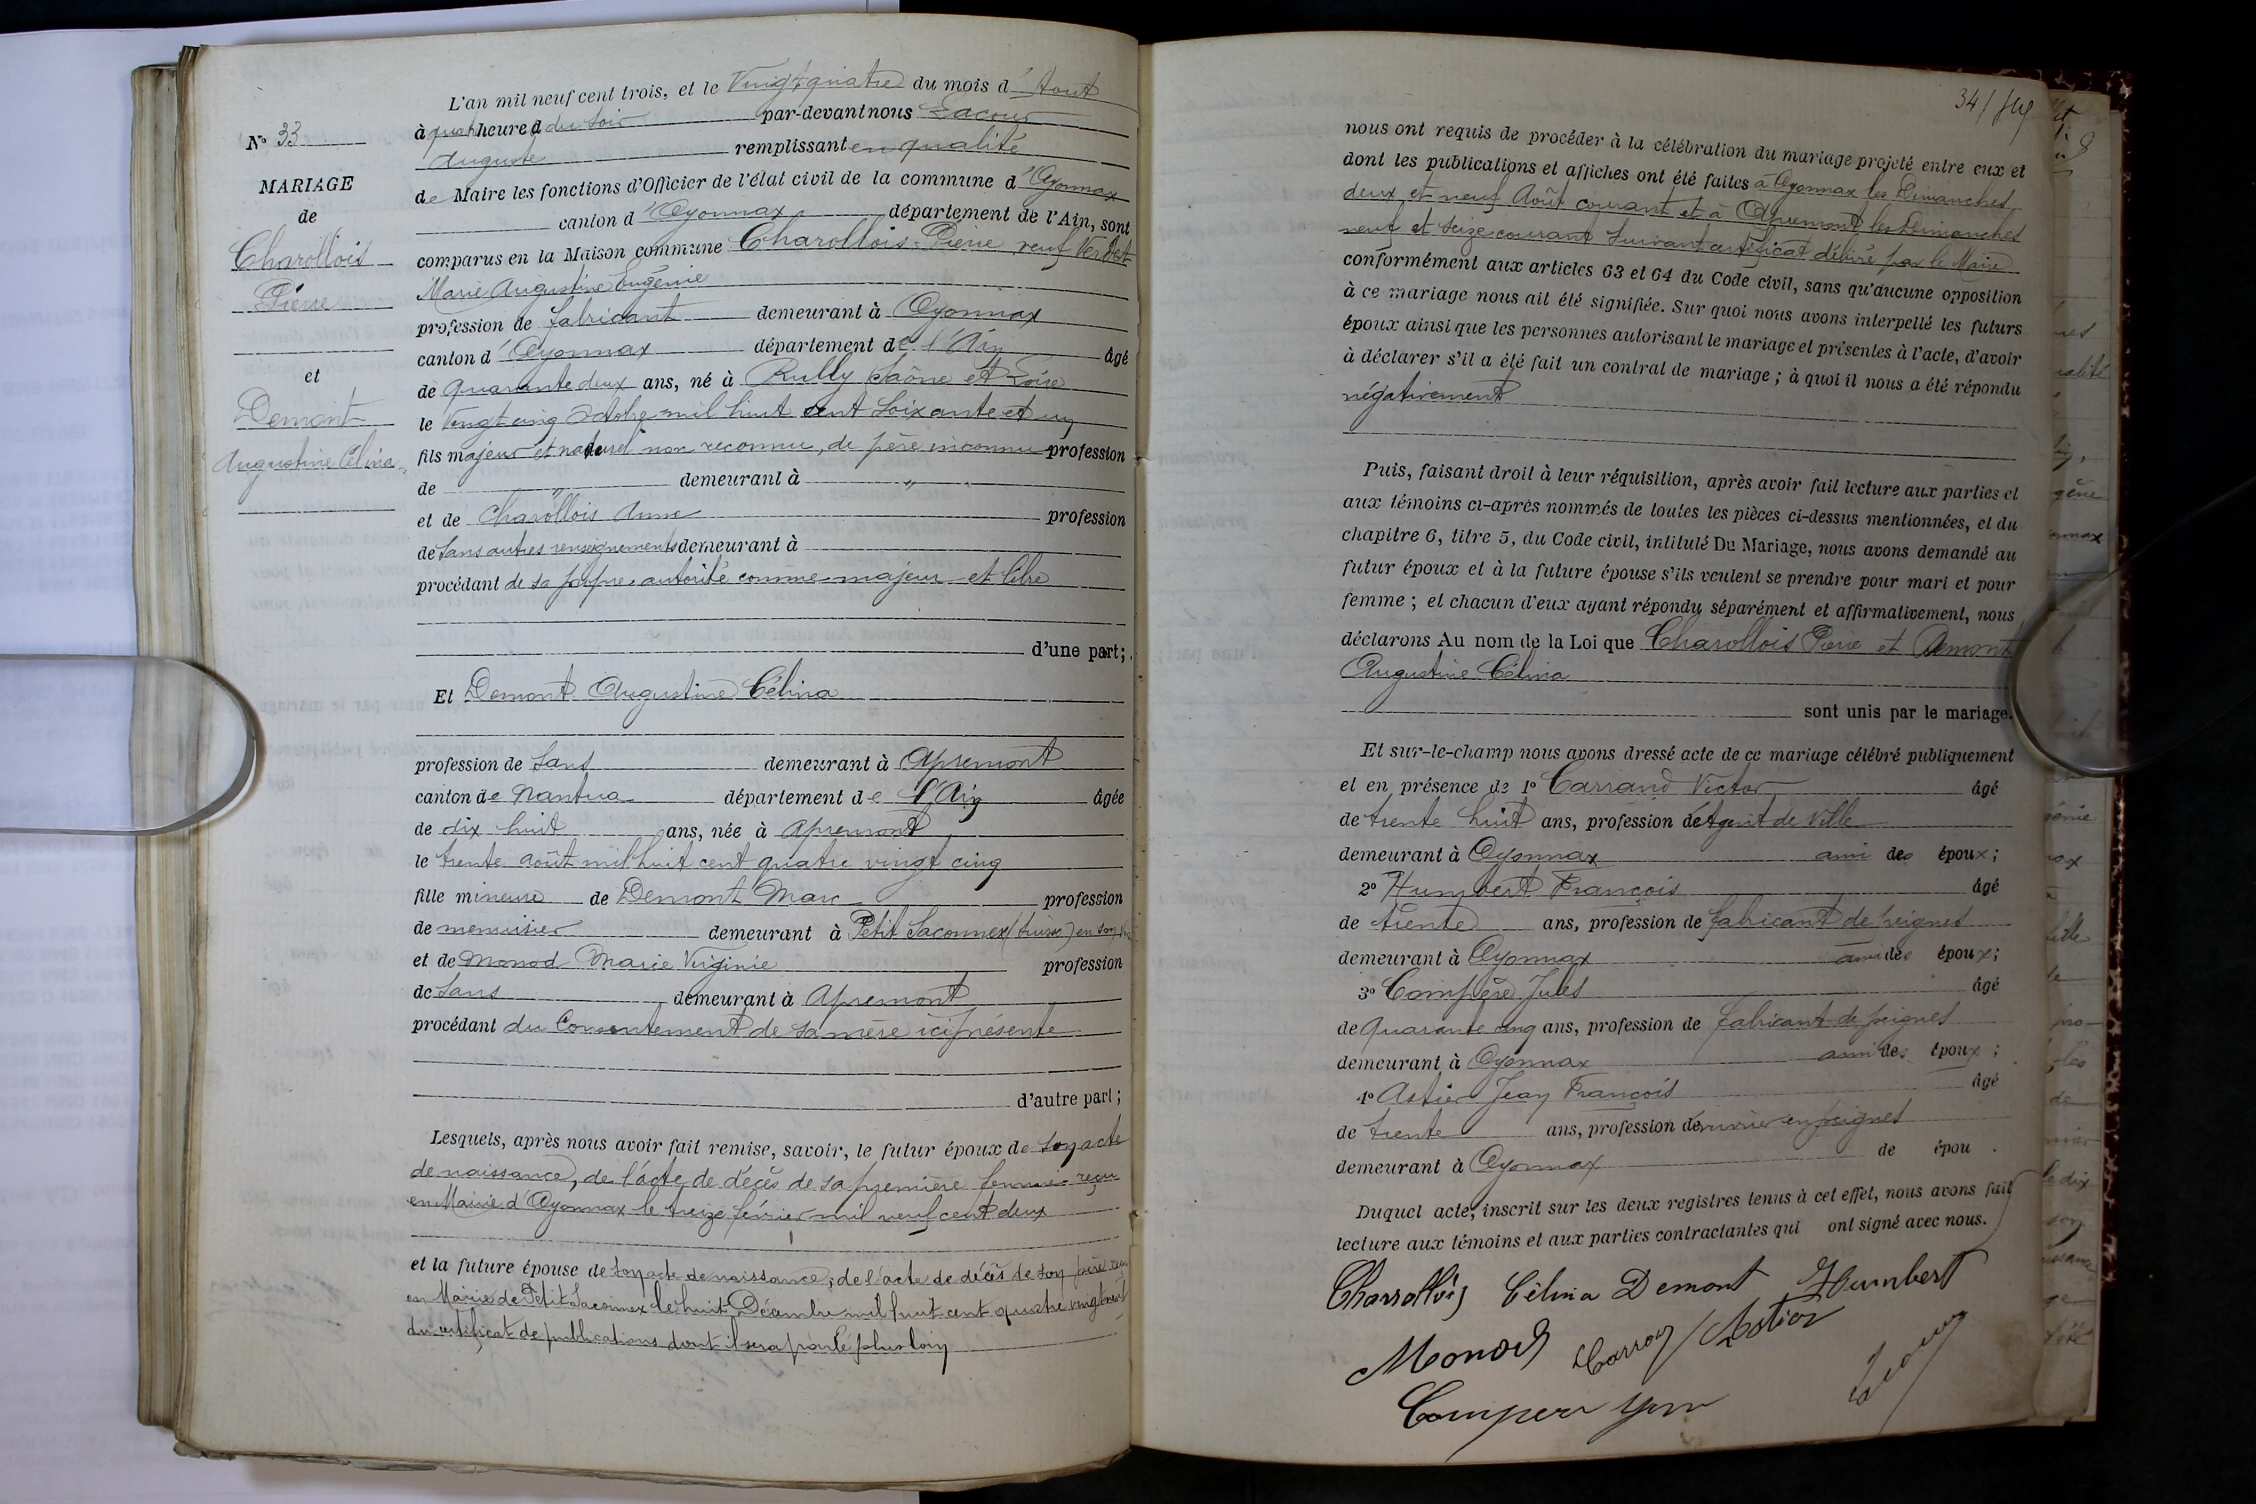 L'an mil neuf cent trois, et le Vingt quatre du mois d'Aout
à quatre heures du soir par-devant nous Lacour
Auguste remplissant en qualité
de Maire les fonctions d'Officier de l'état civil de la commune d'Oyonnax
canton d'Oyonnax département de l'Ain, sont
comparus en la Maison commune Charollois Pierre veuf Verdet
Marie Augustine Eugénie
profession de fabricant demeurant à Oyonnax
canton d'Oyonnax département de l'Ain âgé
de quarante deux ans, né à Rully Saône et Loire
le Vingt cinq Octobre mil huit cent soixante et un
fils majeur et naturel non reconnu, de père inconnu profession
de " demeurant à "
et de Charollois Anne profession
de sans autres renseignements demeurant à
procédant de sa propre autorité comme majeur et libre
d'une part;
Et Demont Augustine Célina
profession de sans demeurant à Apremont
canton de Nantua département de l'Ain âgée
de dix huit ans, née à Apremont
le trente août mil huit cent quatre vingt cinq
fille mineure de Demont Marc profession
de menuisier demeurant à Petit Saconnex (Suisse) en son
et de Monod Marie Virginie profession
de sans demeurant à Apremont
procédant du Consentement de sa mère ici présente
d'autre part;
Lesquels, après nous avoir fait remise, savoir, le futur époux de son acte
de naissance, de l'acte de décès de sa première femme reçu
en Mairie d'Oyonnax le treize février mil neuf cent deux
et la future épouse de son acte de naissance, de l'acte de décès de son père reçu
en Mairie de Petit Saconnex le huit Décembre mil huit cent quatre vingt
du certificat de publications dont il sera parlé plus loin
N° 33
MARIAGE
de
Charollois
Pierre
et
Demont
Augustine Célina
34
nous ont requis de procéder à la célébration du mariage projeté entre eux et
dont les publications et affiches ont été faites à Oyonnax les Dimanches
deux et neuf Août courant et à Apremont les Dimanches
neuf et seize courant suivant certificat délivré par le Maire
conformément aux articles 63 et 64 du Code civil, sans qu'aucune opposition
à ce mariage nous ait été signifiée. Sur quoi nous avons interpellé les futurs
époux ainsi que les personnes autorisant le mariage et présentes à l'acte, d'avoir
à déclarer s'il a été fait un contrat de mariage ; à quoi il nous a été répondu
négativement
Puis, faisant droit à leur réquisition, après avoir fait lecture aux parties et
aux témoins ci-après nommés de toutes les pièces ci-dessus mentionnées, et du
chapitre 6, titre 5, du Code civil, intitulé Du Mariage, nous avons demandé au
futur époux et à la future épouse s'ils veulent se prendre pour mari et pour
femme ; et chacun d'eux ayant répondu séparément et affirmativement, nous
déclarons Au nom de la Loi que Charollois Pierre et Demont
Augustine Célina
sont unis par le mariage.
Et sur-le-champ nous avons dressé acte de ce mariage célébré publiquement
et en présence de 1° Carrand Victor âgé
de trente huit ans, profession d'Agent de Ville
demeurant à Oyonnax ami des époux ;
2° Humbert François âgé
de trente ans, profession de fabricant de peignes
demeurant à Oyonnax ami des époux ;
3° Compère Jules âgé
de quarante cinq ans, profession de fabricant de peignes
demeurant à Oyonnax ami des époux ;
4° Astier Jean François âgé
de trente ans, profession de ouvrier en peignes
demeurant à Oyonnax de épou .
Duquel acte, inscrit sur les deux registres tenus à cet effet, nous avons fait
lecture aux témoins et aux parties contractantes qui ont signé avec nous.
Charrollois Célina Demont Humbert
Monod Carran Astier
Compere Lacour